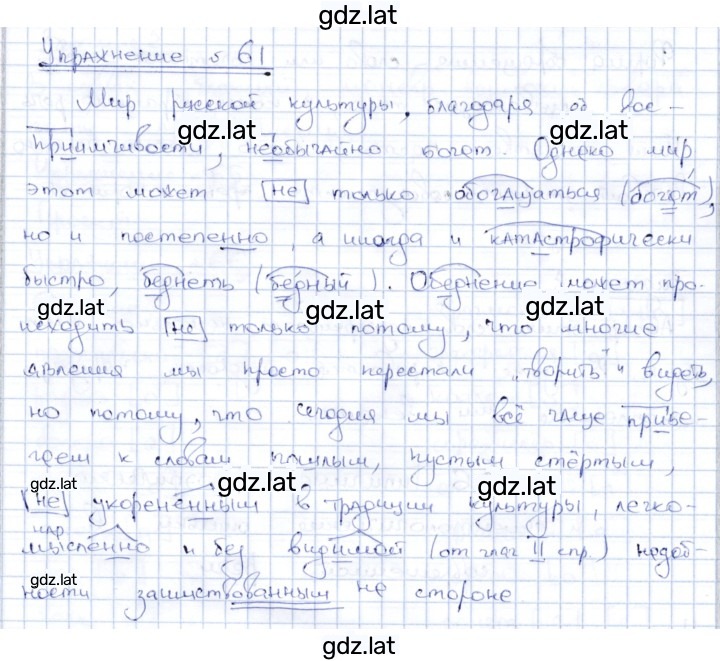 gdz.lat
Упражнение № 61
gdz.lat
Мир русской культуры, благодаря об все-
gdz.lat gdz.lat gdz.lat
приимчивости, необычайно богат. Однако мир,
этот может [не] только обогащаться (богат),
но и постепенно, а иногда и катастрофически
быстро, беднеть (бедный). Обеднение может про-
gdz.lat gdz.lat gdz.lat
исходить [не] только потому, что многие
явления мы просто перестали „творить" и видеть,
но потому, что сегодня мы всё чаще прибе-
гаем к словам пошлым, пустым стёртым,
gdz.lat gdz.lat gdz.lat
[не] укоренённым в традиции культуры, легко-
нар
мысленно и без видимой (от глаг II спр.) надоб-
gdz.lat
ности заимствованным не стороне
gdz.lat gdz.lat
gdz.lat